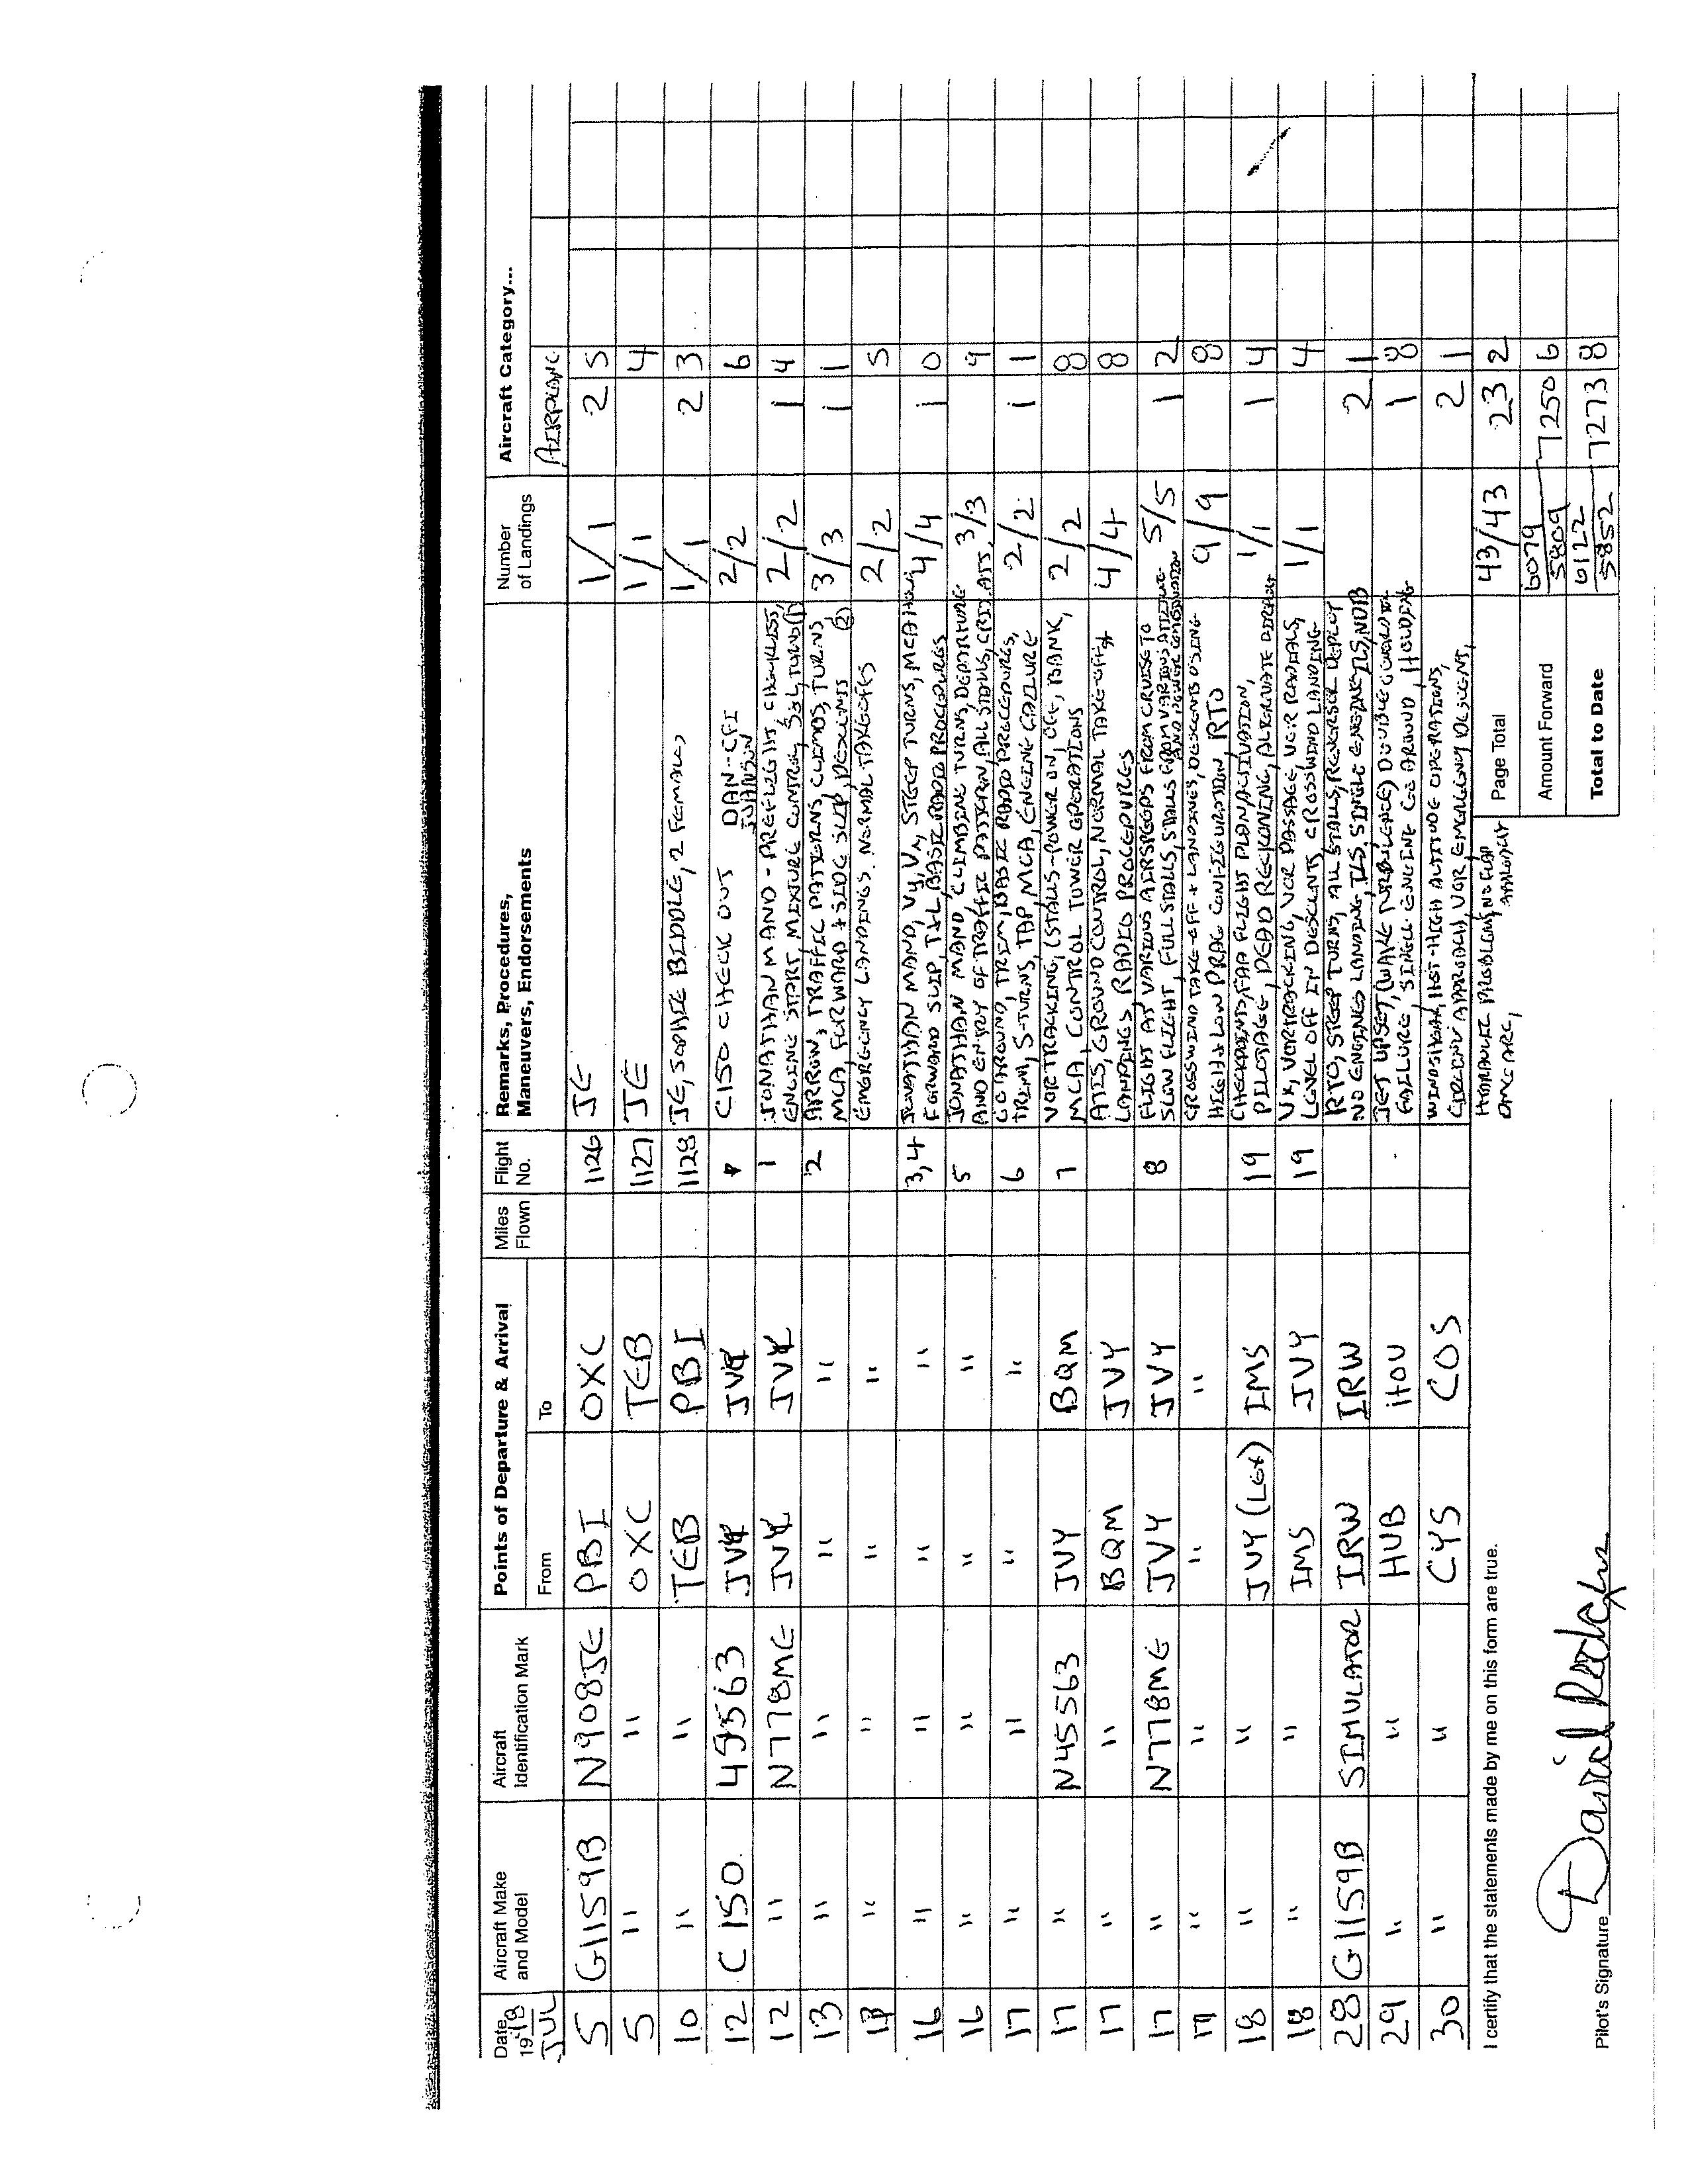 Date 19 98 JUL | Aircraft Make and Model | Aircraft Identification Mark | Points of Departure & Arrival From | To | Miles Flown | Flight No. | Remarks, Procedures, Maneuvers, Endorsements | Number of Landings | Aircraft Category... AIRPLANE
5 G1159B N908JE PBI OXC 1126 JE 1/1 2 5
5 " " OXC TEB 1127 JE 1/1 4
10 " " TEB PBI 1128 JE, SOPHIE BIDDLE, 2 FEMALES 1/1 2 3
12 C150 45563 JVY JVY C150 CHECK OUT DAN-CFI 2/2 6
12 " N778ME JVY JVY 1 JONATHAN MANO - PREFLIGHT, CHECKLIST, 2/2 1 4
ENGINE START, MIXTURE CONTROL, S&L, TURNS (1)
13 " " " " 2 ARROW, TRAFFIC PATTERNS, CLIMBS, TURNS, 3/3 1 1
MCA, FORWARD + SIDE SLIP, DESCENTS (2)
13 " " " " EMERGENCY LANDINGS. NORMAL TAKEOFFS 2/2 5
16 " " " " 3,4 JONATHAN MANO, Vy, Vx, STEEP TURNS, MCA 4/4 1 0
FORWARD SLIP, T+L, BASIC RADIO PROCEDURES
16 " " " " 5 JONATHAN MANO, CLIMBING TURNS, DEPARTURE 3/3 9
AND ENTRY OF TRAFFIC PATTERN, ALL STALLS,
17 " " " " 6 GO AROUND, TRIM, BASIC RADIO PROCEDURES, 2/2 1 1
TRIM, S-TURNS, TAP, MCA, ENGINE FAILURE
17 " N45563 JVY BQM 7 VOR TRACKING, (STALLS-POWER ON, OFF, BANK, 2/2 8
MCA, CONTROL TOWER OPERATIONS
17 " " BQM JVY ATIS, GROUND CONTROL, NORMAL TAKE-OFF + 4/4 8
LANDINGS, RADIO PROCEDURES
17 " N778ME JVY JVY 8 FLIGHT AT VARIOUS AIRSPEEDS FROM CRUISE TO 5/5 1 2
SLOW FLIGHT, FULL STALLS, STALLS FROM VARIOUS ATTITUDE AND POWER COMBINATION
17 " " " " CROSSWIND TAKE-OFF + LANDINGS, DESCENTS USING 9/9 8
HIGH + LOW DRAG CONFIGURATION, RTO
18 " " JVY (LGX) IMS 19 CHECKPOINTS, FAA FLIGHT PLAN/ACTIVATION, 1/1 1 4
PILOTAGE, DEAD RECKONING, ALTERNATE
18 " " IMS JVY 19 VR, VOR TRACKING, VOR PASSAGE, VOR RADIALS, 1/1 4
LEVEL OFF IN DESCENTS, CROSSWIND LANDING
28 G1159B SIMULATOR IRW IRW RTO, STEEP TURNS, ALL STALLS, REVERSER DEPLOY 2 1
NO ENGINES LANDING, ILS, SINGLE ENGINE ILS, NDB
29 " " HUB HOU JET UPSET, (WAKE TURBULENCE) DOUBLE 1 8
FAILURE, SINGLE ENGINE GO AROUND, HOLDING
30 " " CYS COS WINDSHEAR, HOT-HIGH ALTITUDE OPERATIONS, 2 1
APPROACH, VOR, EMERGENCY DESCENT,
HYDRAULIC PROBLEMS, NO FLAP APPROACH
DME ARC,
Page Total 43/43 23 2
Amount Forward 6079 5809 7250 6
Total to Date 6122 5852 7273 8
I certify that the statements made by me on this form are true.
Pilot's Signature David Rodgers